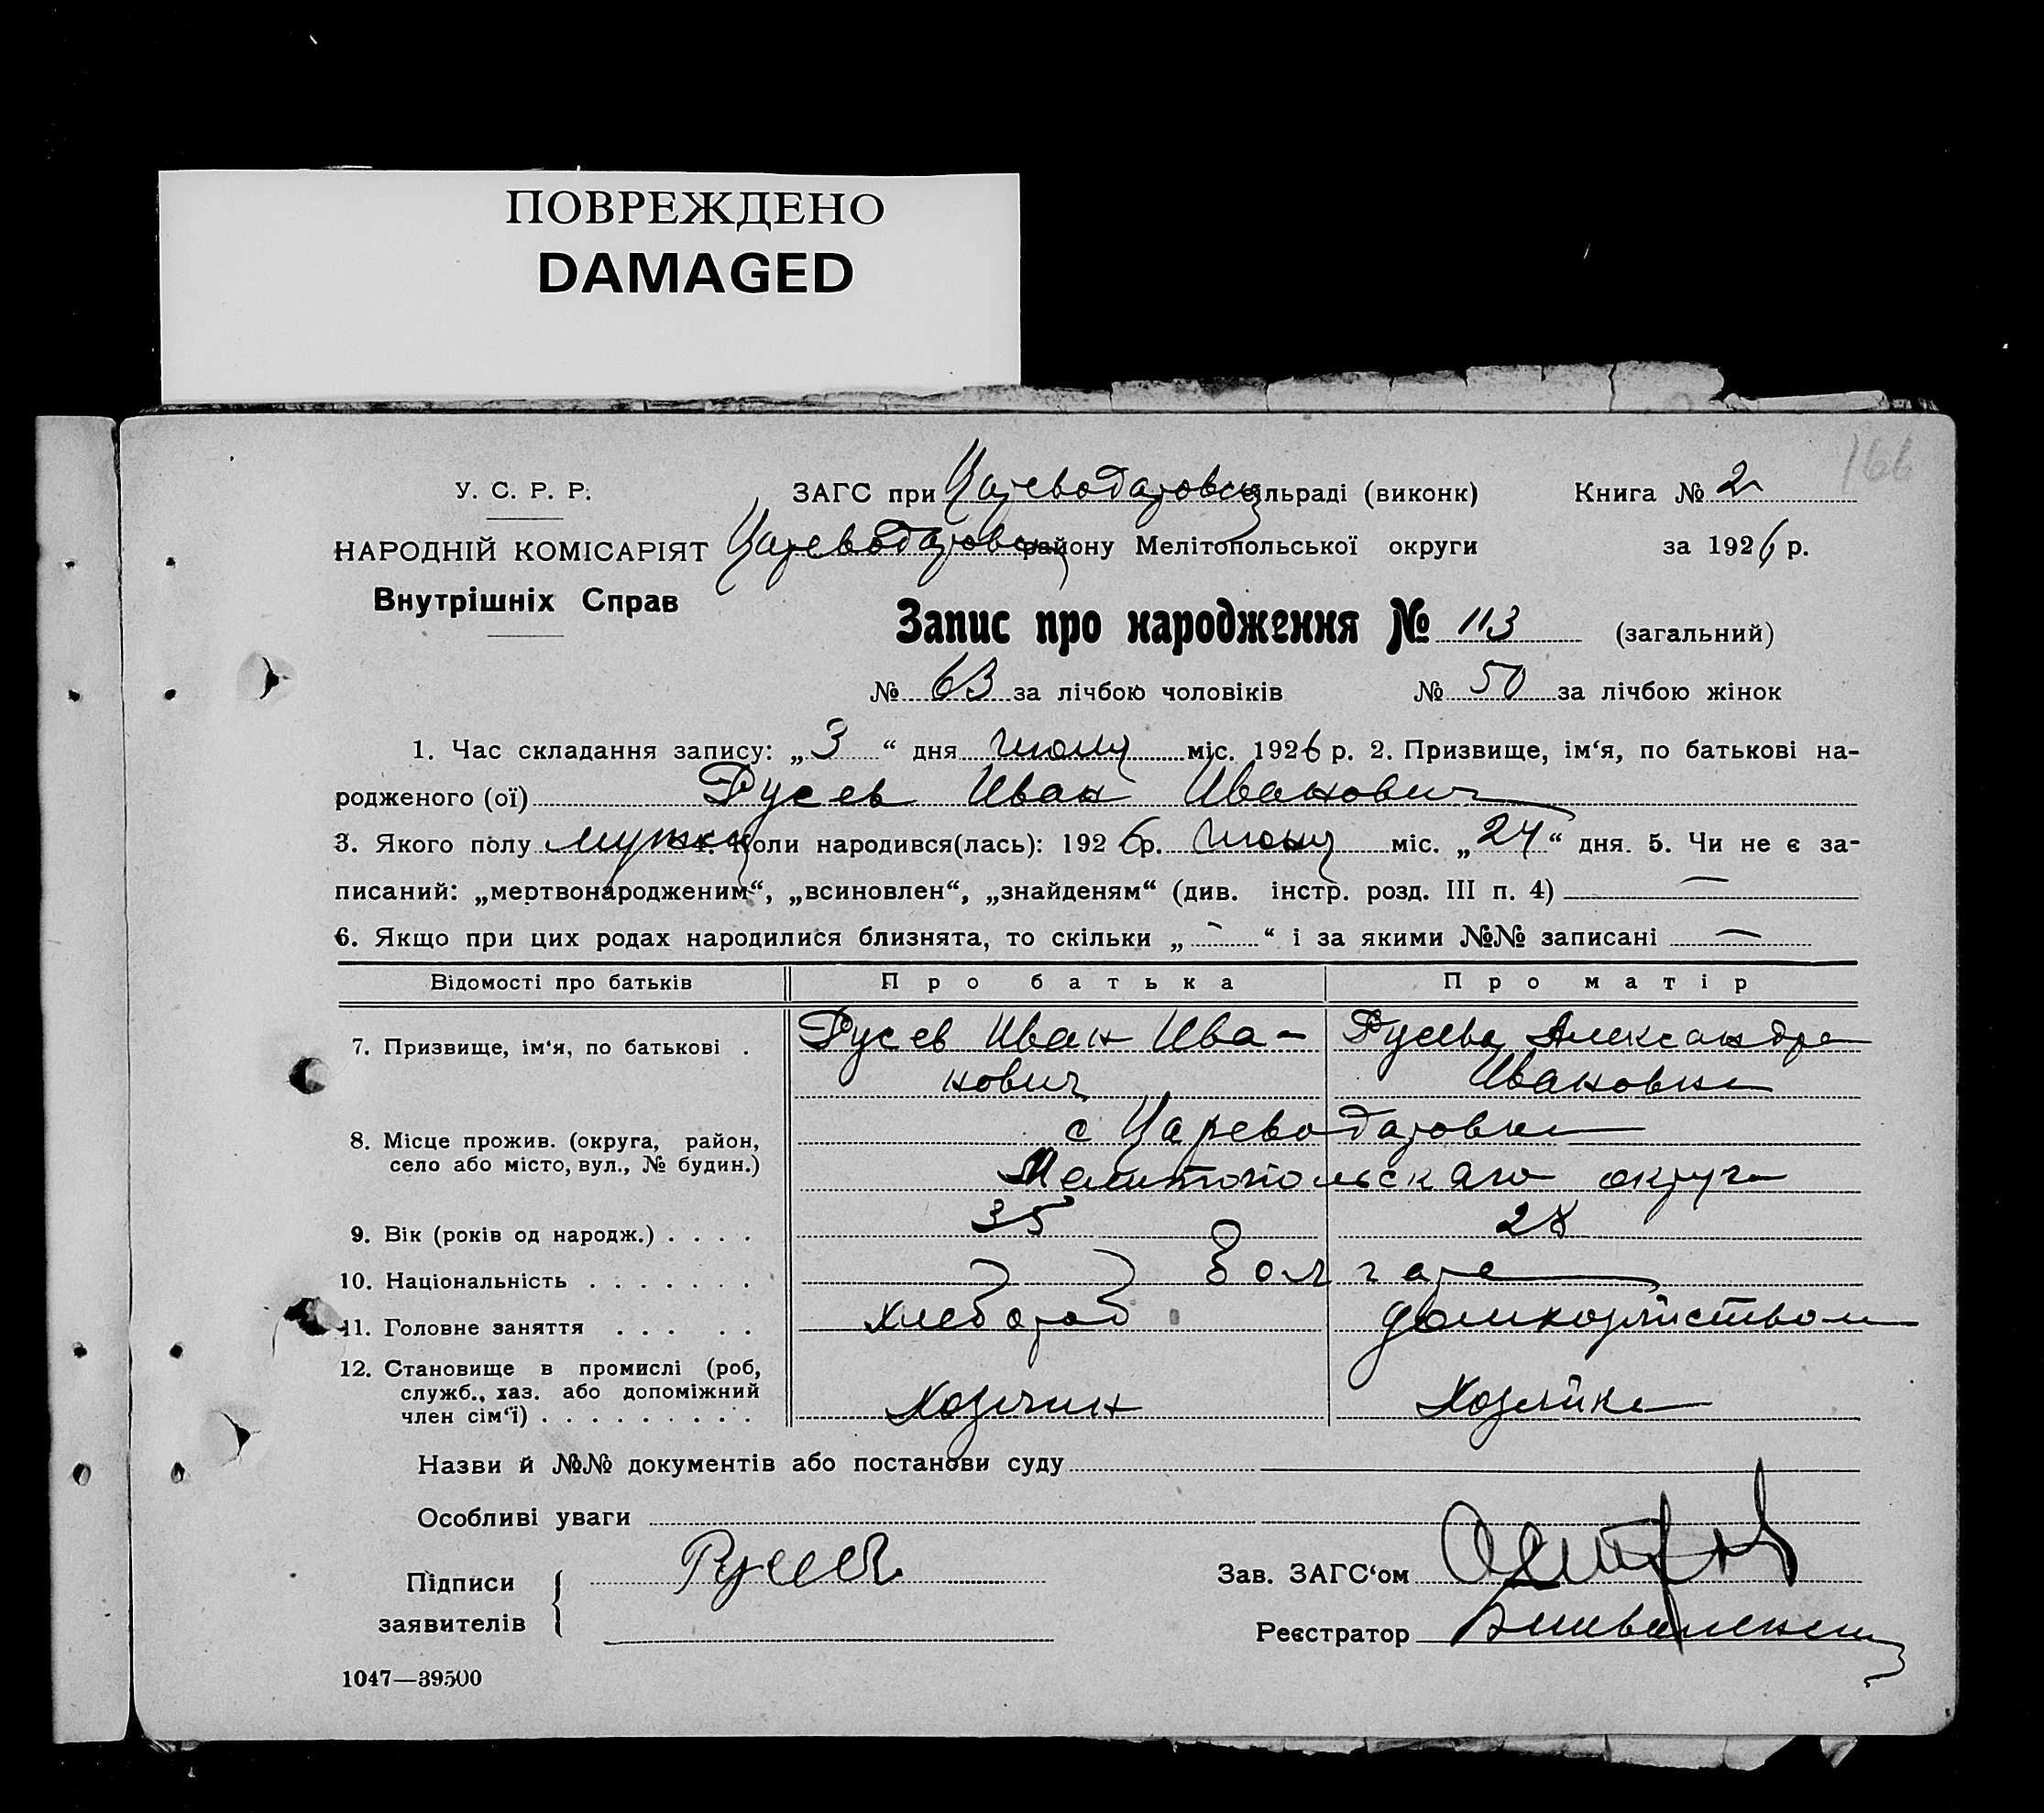 ПОВРЕЖДЕНО
DAMAGED
166
У. С. Р. Р.
НАРОДНІЙ КОМІСАРІЯТ
Внутрішніх Справ
ЗАГС при Цареводаровск сільраді (виконк) Книга № 2
Цареводаровск району Мелітопольської округи за 1926 р.
Запис про народження № 113 (загальний)
№ 63 за лічбою чоловіків № 50 за лічбою жінок
1. Час складання запису: „ 3 “ дня міс. 1926 р. 2. Призвище, ім‘я, по батькові на-
родженого (ої) Русев Иван Иванович
3. Якого полу мужск 4. Коли народився(лась): 1926 р. міс. „ 24 “ дня. 5. Чи не є за-
писаний: „мертвонародженим“, „всиновлен“, „знайденям“ (див. інстр. розд. III п. 4) —
6. Якщо при цих родах народилися близнята, то скільки „ - “ і за якими №№ записані —
Відомості про батьків Про батька Про матір
7. Призвище, ім‘я, по батькові . Русев Иван Ива- Русева Александра
нович Ивановна
8. Місце прожив. (округа, район, с Цареводаровка
село або місто, вул., № будин.) Мелитопольскаго округа
9. Вік (років од народж.) . . . . 35 28
10. Національність . . . . . . . болгаре
11. Головне заняття . . . . . хлебороб домхозяйством
12. Становище в промислі (роб,
служб., хаз. або допоміжний
член сім‘ї) . . . . . . . . . Хозяин Хозяйка
Назви й №№ документів або постанови суду
Особливі уваги
Підписи Русев Зав. ЗАГС‘ом
заявителів Реєстратор
1047—39500